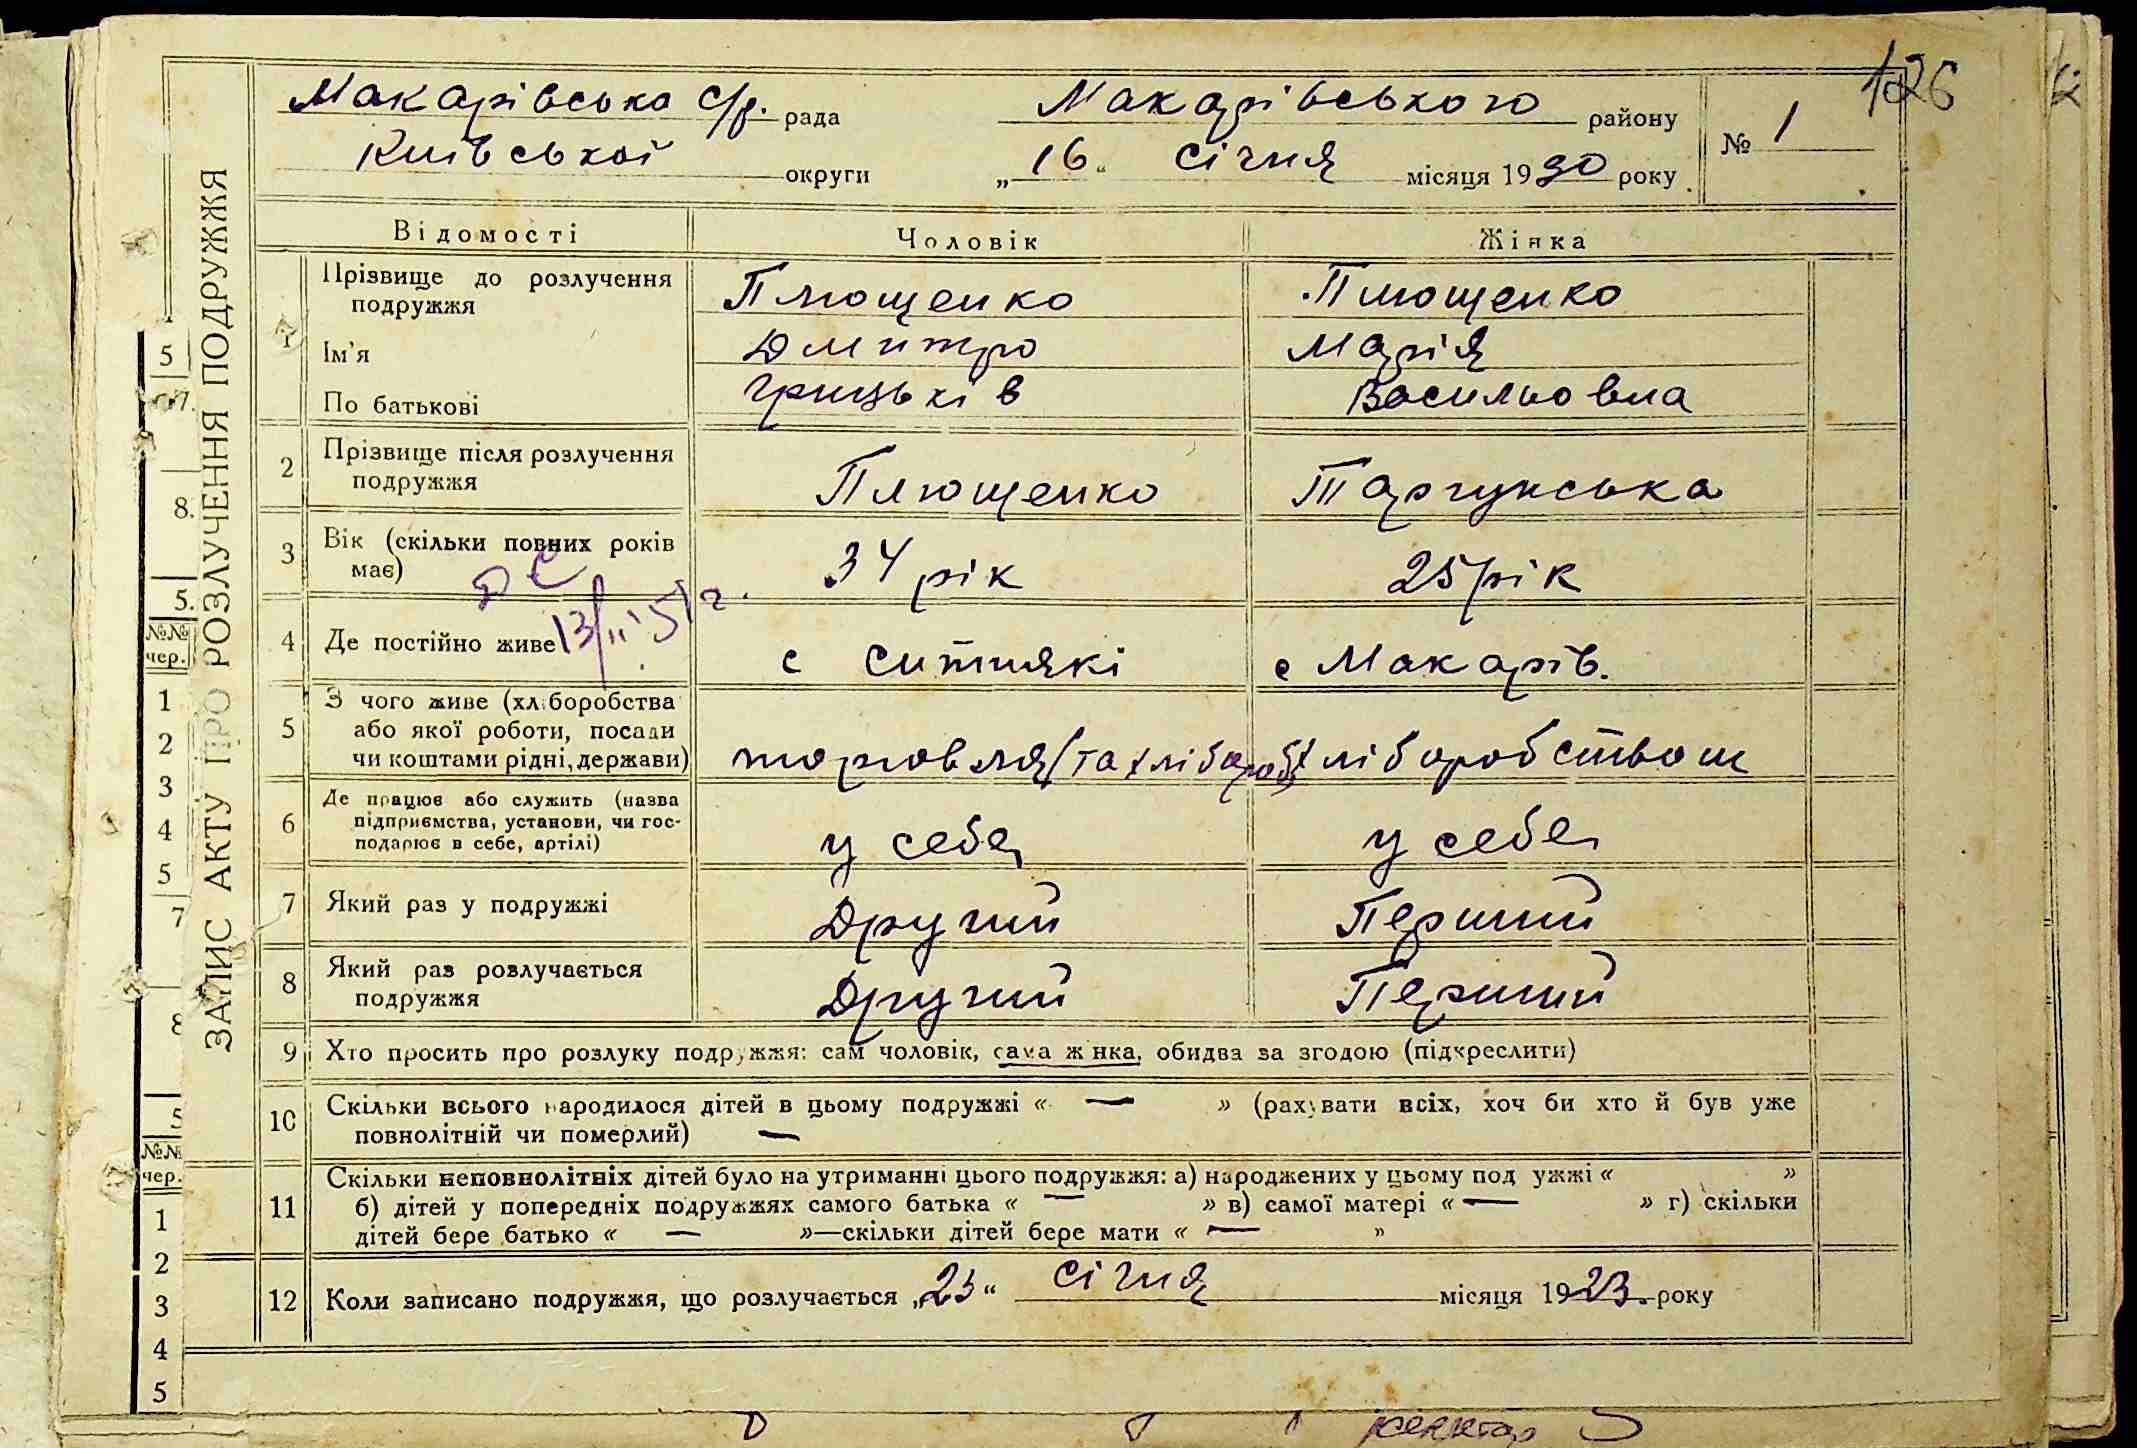 126
Макарівська с/р. рада Макарівського району № 1
Київської округи „16“ січня місяця 1930 року
ЗАПИС АКТУ ПРО РОЗЛУЧЕННЯ ПОДРУЖЖЯ
Відомості Чоловік Жінка
1 Прізвище до розлучення подружжя Плющенко Плющенко
Ім’я Дмитро Марія
По батькові Грицьків Васильовна
2 Прізвище після розлучення
подружжя Плющенко Таргунська
3 Вік (скільки повних років
має) 34 рік 25 рік
13/II 51 г.
4 Де постійно живе с Ситнякі с Макарів.
5 З чого живе (хліборобства
або якої роботи, посади
чи коштами рідні, держави) торговля (та хлібороб) хліборобством
6 Де працює або служить (назва
підприємства, установи, чи гос-
подарює в себе, артілі) у себе у себе
7 Який раз у подружжі Другий Перший
8 Який раз розлучається
подружжя Другий Перший
9 Хто просить про розлуку подружжя: сам чоловік, сама жінка, обидва за згодою (підкреслити)
10 Скільки всього народилося дітей в цьому подружжі « — » (рахувати всіх, хоч би хто й був уже
повнолітній чи померлий) —
11 Скільки неповнолітніх дітей було на утриманні цього подружжя: а) народжених у цьому подружжі « »
б) дітей у попередніх подружжях самого батька « — » в) самої матері « — » г) скільки
дітей бере батько « — »—скільки дітей бере мати « — »
12 Коли записано подружжя, що розлучається „23“ січня місяця 1923. року
5
7.
8.
5.
№№
чер.
1
2
3
4
5
7
8
5
№№
чер.
1
2
3
4
5